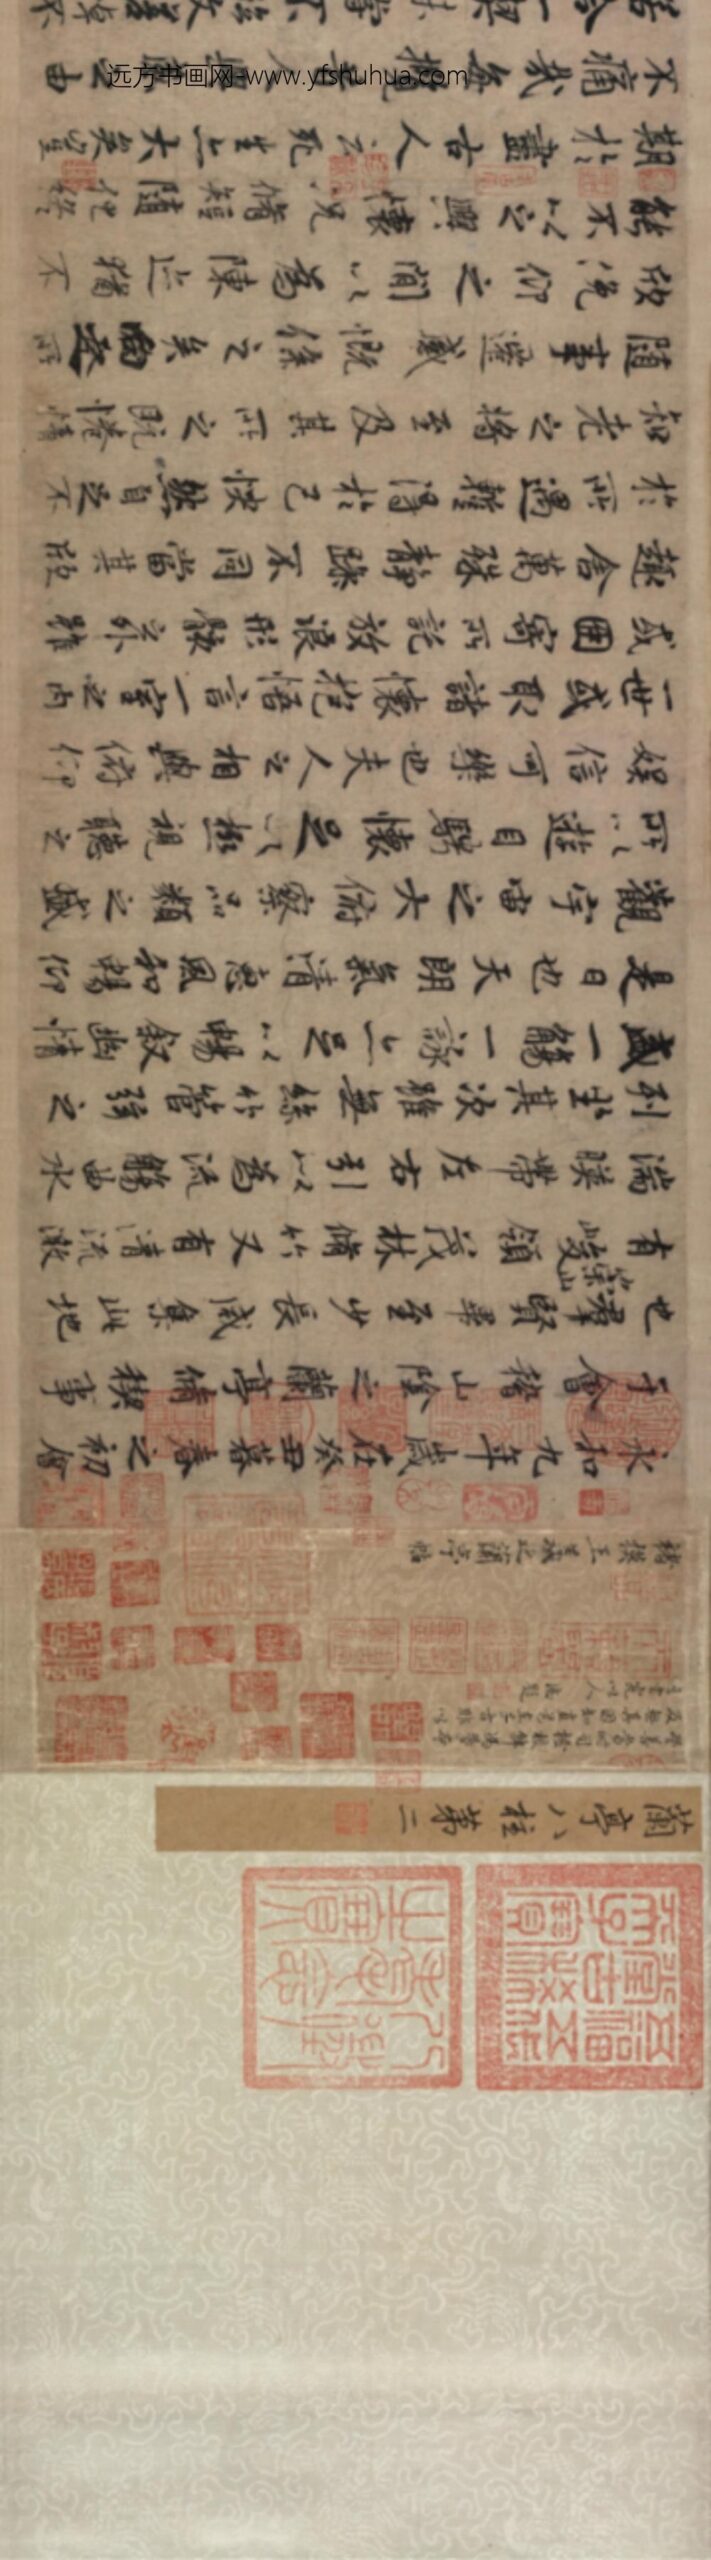 五福五代堂古稀天子寶
八徵耄念之寶
蘭亭八柱第二
褚模王羲之蘭亭帖
永和九年歲在癸丑暮春之初會
于會稽山陰之蘭亭脩稧事
也羣賢畢至少長咸集此地
有崇山峻領茂林脩竹又有清流激
湍暎帶左右引以為流觴曲水
列坐其次雖無絲竹管弦之
盛一觴一詠亦足以暢敘幽情
是日也天朗氣清惠風和暢仰
觀宇宙之大俯察品類之盛
所以遊目騁懷足以極視聽之
娛信可樂也夫人之相與俯仰
一世或取諸懷抱悟言一室之內
或因寄所託放浪形骸之外雖
趣舍萬殊靜躁不同當其欣
於所遇蹔得於己快然自足不
知老之將至及其所之既惓情
隨事遷感慨係之矣向之所
欣俛仰之間以為陳迹猶不
能不以之興懷況脩短隨化終
期於盡古人云死生亦大矣豈
不痛哉每攬昔人興感之由
若合一契未嘗不臨文嗟悼不
远方书画网-www.yfshuhua.com